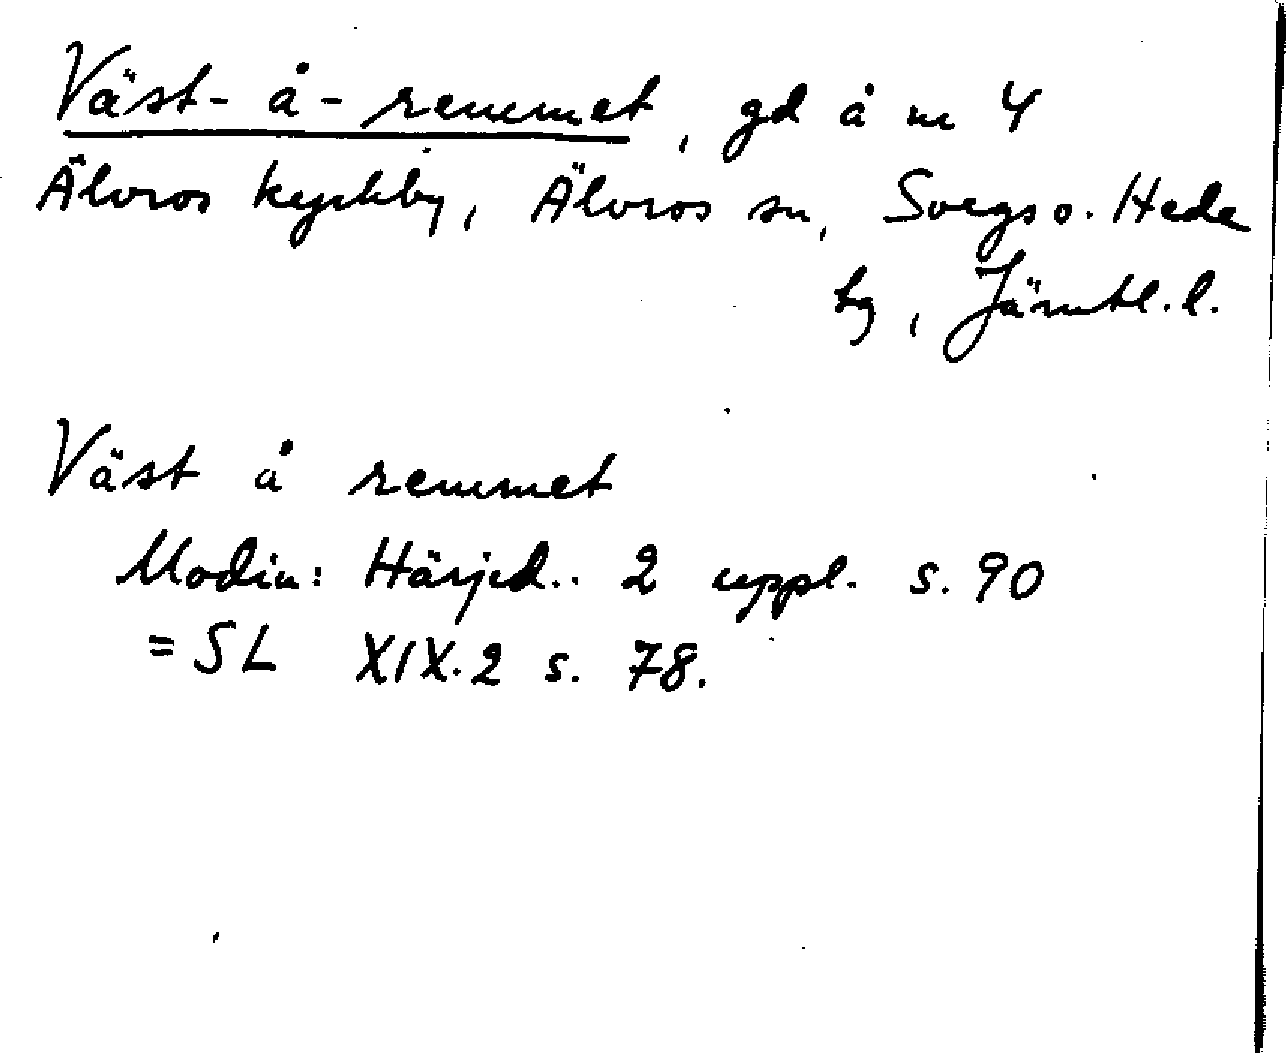 Väst-å-remmet, gd å nr 4
Älvros kyrkby, Älvros sn, Svegs o. Hede
tg, Jämtl. l.
Väst å remmet
Modin: Härjed.. 2 uppl. s. 90
= SL XIX.2 s. 78.